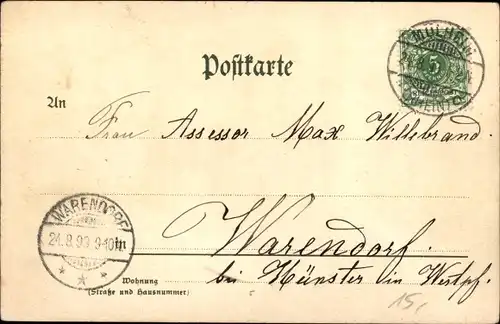 MÜLHEIM
5
(RHEIN)
Postkarte
An
Frau Assessor Max Willebrand.
WARENDORF
24.8.99 9-10
Warendorf.
bei Münster in Westpf.
Wohnung
(Straße und Hausnummer)
15,